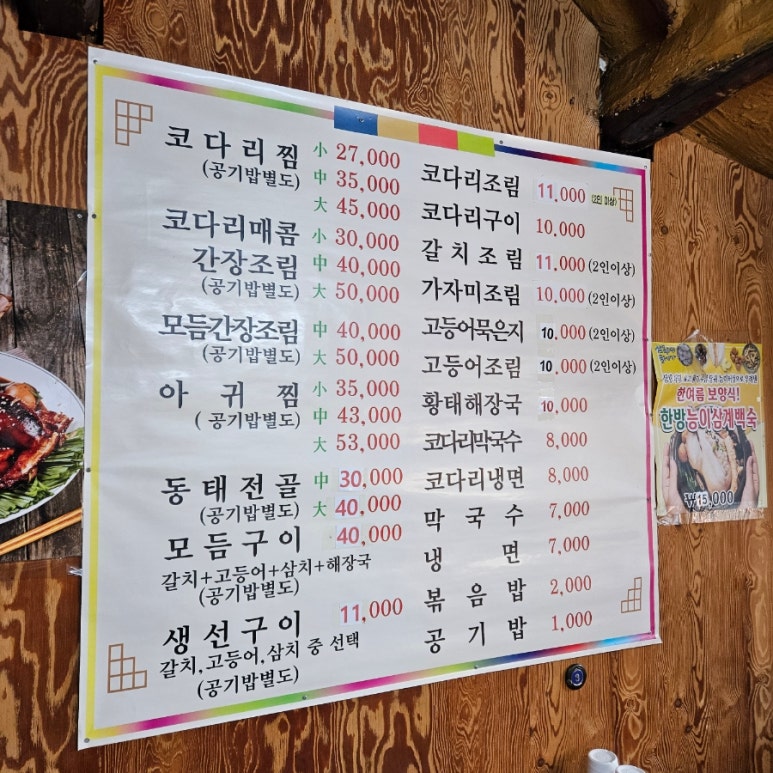 코다리찜 小 27,000
(공기밥별도) 中 35,000
大 45,000
코다리매콤 小 30,000
간장조림 中 40,000
(공기밥별도) 大 50,000
모듬간장조림 中 40,000
(공기밥별도) 大 50,000
아귀찜 小 35,000
( 공기밥별도) 中 43,000
大 53,000
동태전골 中 30,000
(공기밥별도) 大 40,000
모듬구이 40,000
갈치+고등어+삼치+해장국
(공기밥별도)
생선구이 11,000
갈치,고등어,삼치 중 선택
(공기밥별도)
코다리조림 11,000 (2인 이상)
코다리구이 10,000
갈치조림 11,000 (2인이상)
가자미조림 10,000 (2인이상)
고등어묵은지 10,000 (2인이상)
고등어조림 10,000 (2인이상)
황태해장국 10,000
코다리막국수 8,000
코다리냉면 8,000
막국수 7,000
냉면 7,000
볶음밥 2,000
공기밥 1,000
한여름 보양식!
한방능이삼계백숙
₩15,000
3